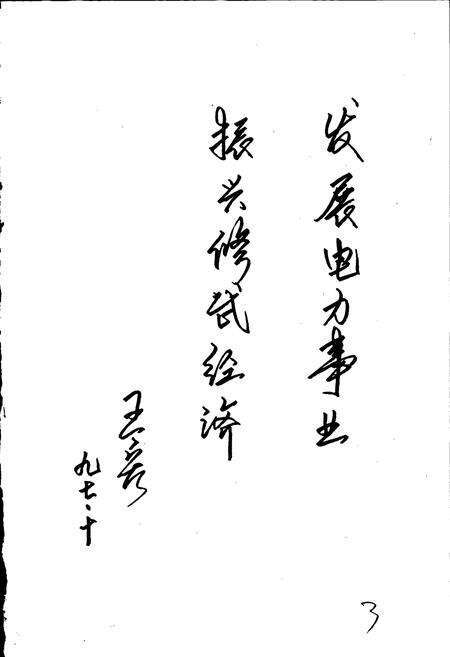 发展电力事业
振兴修武经济
王
九七、十
3